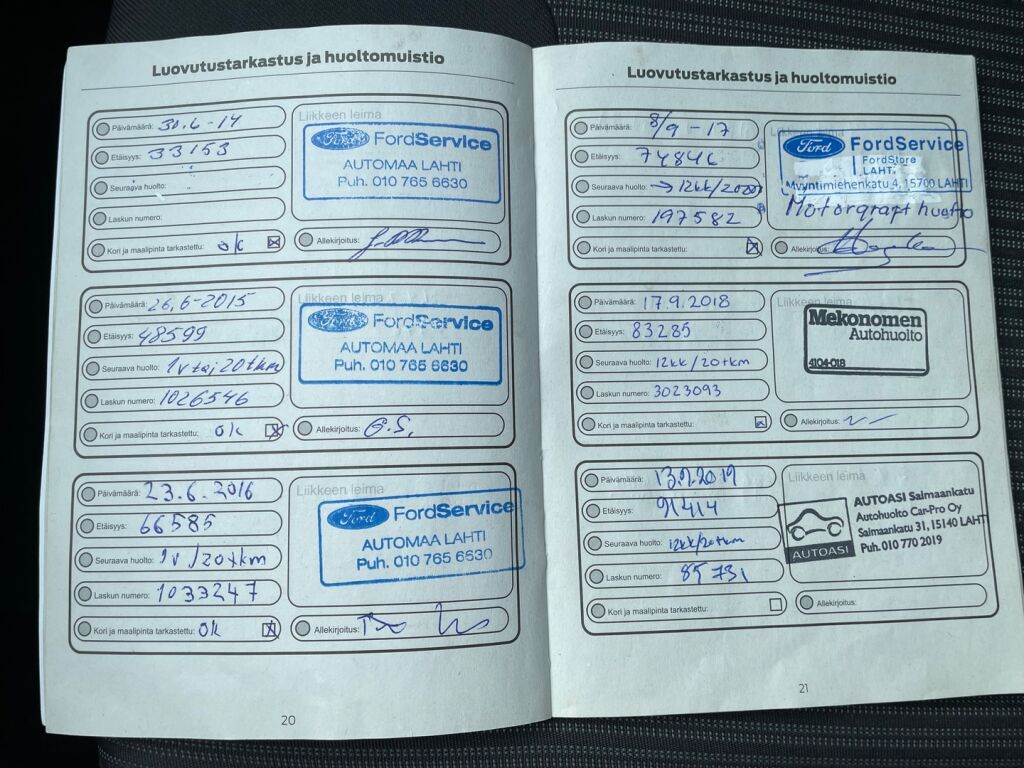 Luovutustarkastus ja huoltomuistio
Päivämäärä: 30.6-14
Etäisyys: 33153
Seuraava huolto:
Laskun numero:
Kori ja maalipinta tarkastettu: ok
Liikkeen leima
Ford FordService
AUTOMAA LAHTI
Puh. 010 765 6630
Allekirjoitus:
Päivämäärä: 26,6-2015
Etäisyys: 48599
Seuraava huolto: 1v tai 20tkm
Laskun numero: 1026546
Kori ja maalipinta tarkastettu: ok
Liikkeen leima
Ford FordService
AUTOMAA LAHTI
Puh. 010 765 6630
Allekirjoitus: G.S.
Päivämäärä: 23.6.2016
Etäisyys: 66585
Seuraava huolto: 1v/20tkm
Laskun numero: 1033247
Kori ja maalipinta tarkastettu: ok
Liikkeen leima
Ford FordService
AUTOMAA LAHTI
Puh. 010 765 6630
Allekirjoitus:
20
Luovutustarkastus ja huoltomuistio
Päivämäärä: 8/9-17
Etäisyys: 74846
Seuraava huolto: → 12kk/20000
Laskun numero: 197582
Kori ja maalipinta tarkastettu:
Liikkeen leima
Ford FordService
FordStore
LAHTI
Myyntimiehenkatu 4, 15700 LAHTI
Motorcraft huolto
Allekirjoitus:
Päivämäärä: 17.9.2018
Etäisyys: 83285
Seuraava huolto: 12kk/20tkm
Laskun numero: 3023093
Kori ja maalipinta tarkastettu:
Liikkeen leima
Mekonomen
Autohuolto
4104-018
Allekirjoitus:
Päivämäärä: 13.9.2019
Etäisyys: 91414
Seuraava huolto: 12kk/20tkm
Laskun numero: 85731
Kori ja maalipinta tarkastettu:
Liikkeen leima
AUTOASI
AUTOASI Saimaankatu
Autohuolto Car-Pro Oy
Saimaankatu 31, 15140 LAHTI
Puh. 010 770 2019
Allekirjoitus:
21